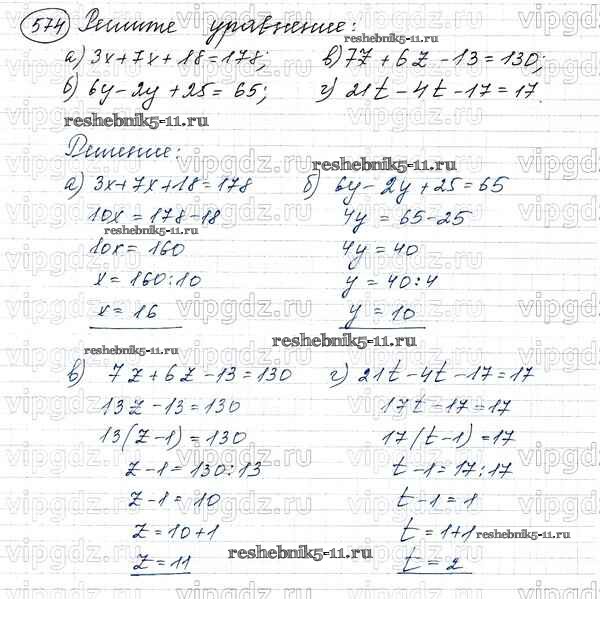 574 Решите уравнение:
reshebnik5-11.ru
а) 3x+7x+18=178; в) 7z+6z-13=130;
б) 6y-2y+25=65; г) 21t-4t-17=17.
reshebnik5-11.ru
Решение:
reshebnik5-11.ru
а) 3x+7x+18=178
10x=178-18
reshebnik5-11.ru
10x=160
x=160:10
x=16
б) 6y-2y+25=65
4y=65-25
4y=40
y=40:4
y=10
reshebnik5-11.ru
reshebnik5-11.ru
в) 7z+6z-13=130
13z-13=130
13(z-1)=130
z-1=130:13
z-1=10
z=10+1
z=11
reshebnik5-11.ru
г) 21t-4t-17=17
17t-17=17
17(t-1)=17
t-1=17:17
t-1=1
t=1+1
reshebnik5-11.ru
t=2
vipgdz.ru